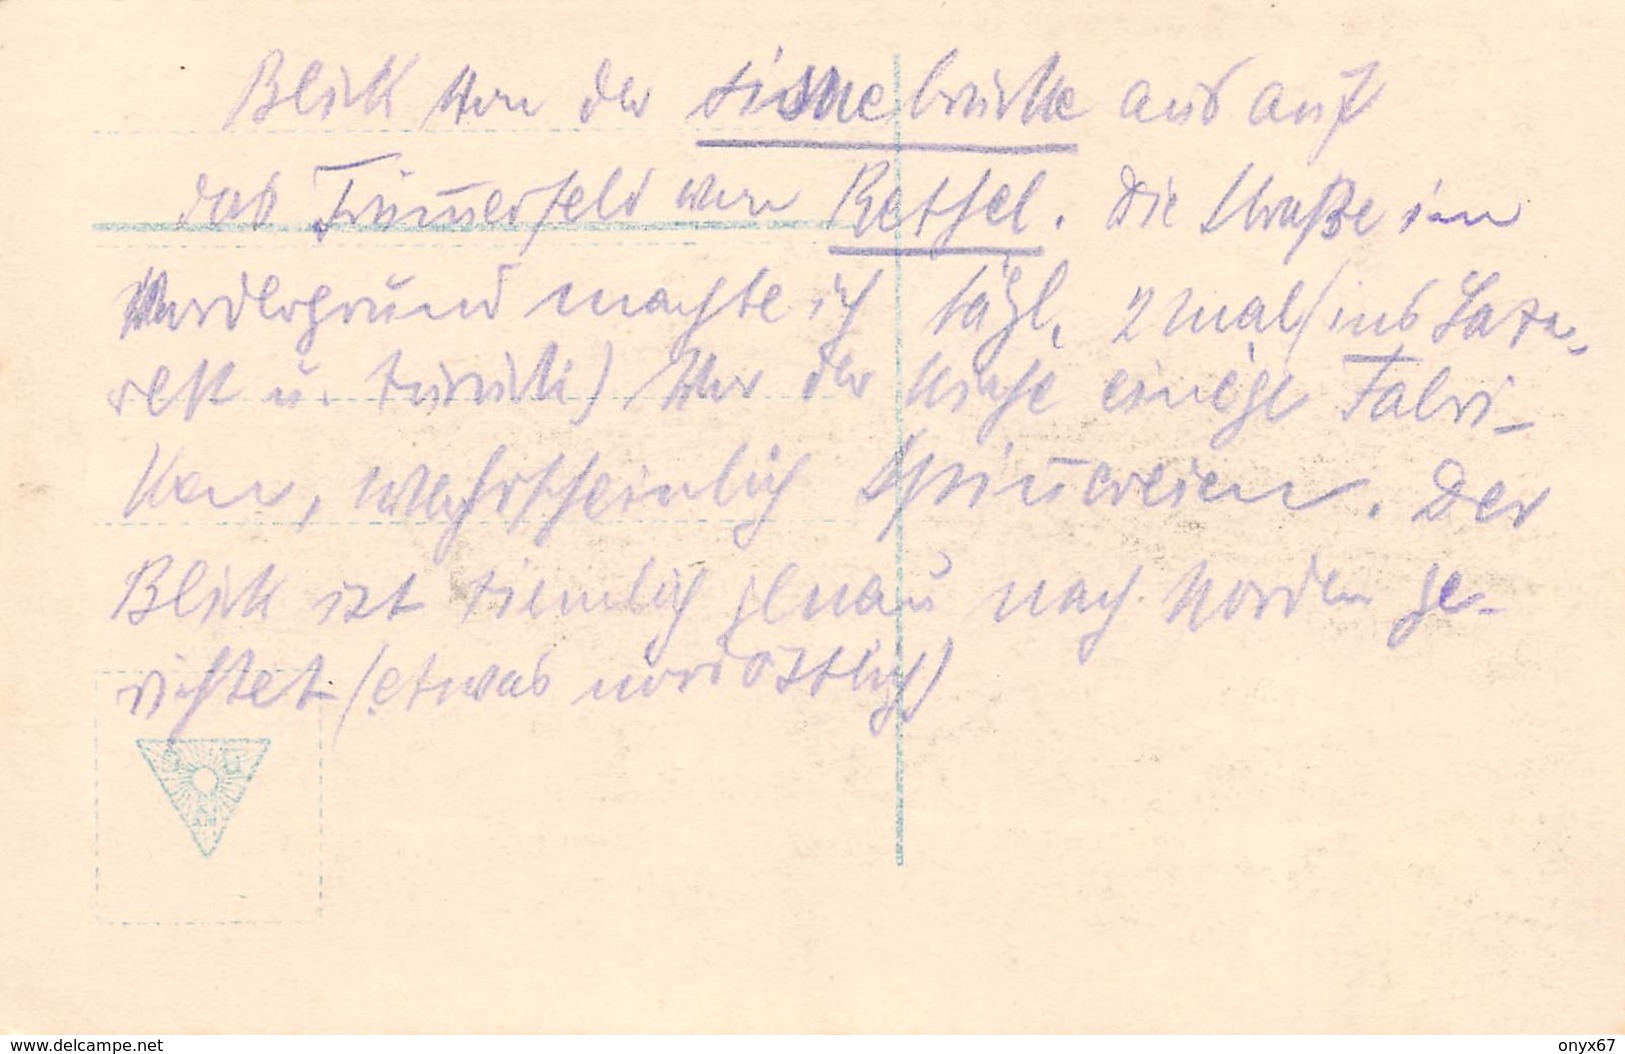 Blick von der Aisnebrücke aus auf
das Trümmerfeld von Rethel. Die Straße im
Vordergrund machte ich tägl. 2 mal (ins Laza-
rett u. zurück) Vor der Kirche einige Fabri-
ken, wahrscheinlich Spinnereien. Der
Blick ist ziemlich genau nach Norden ge-
richtet (etwas nordöstlich)
www.delcampe.net
onyx67